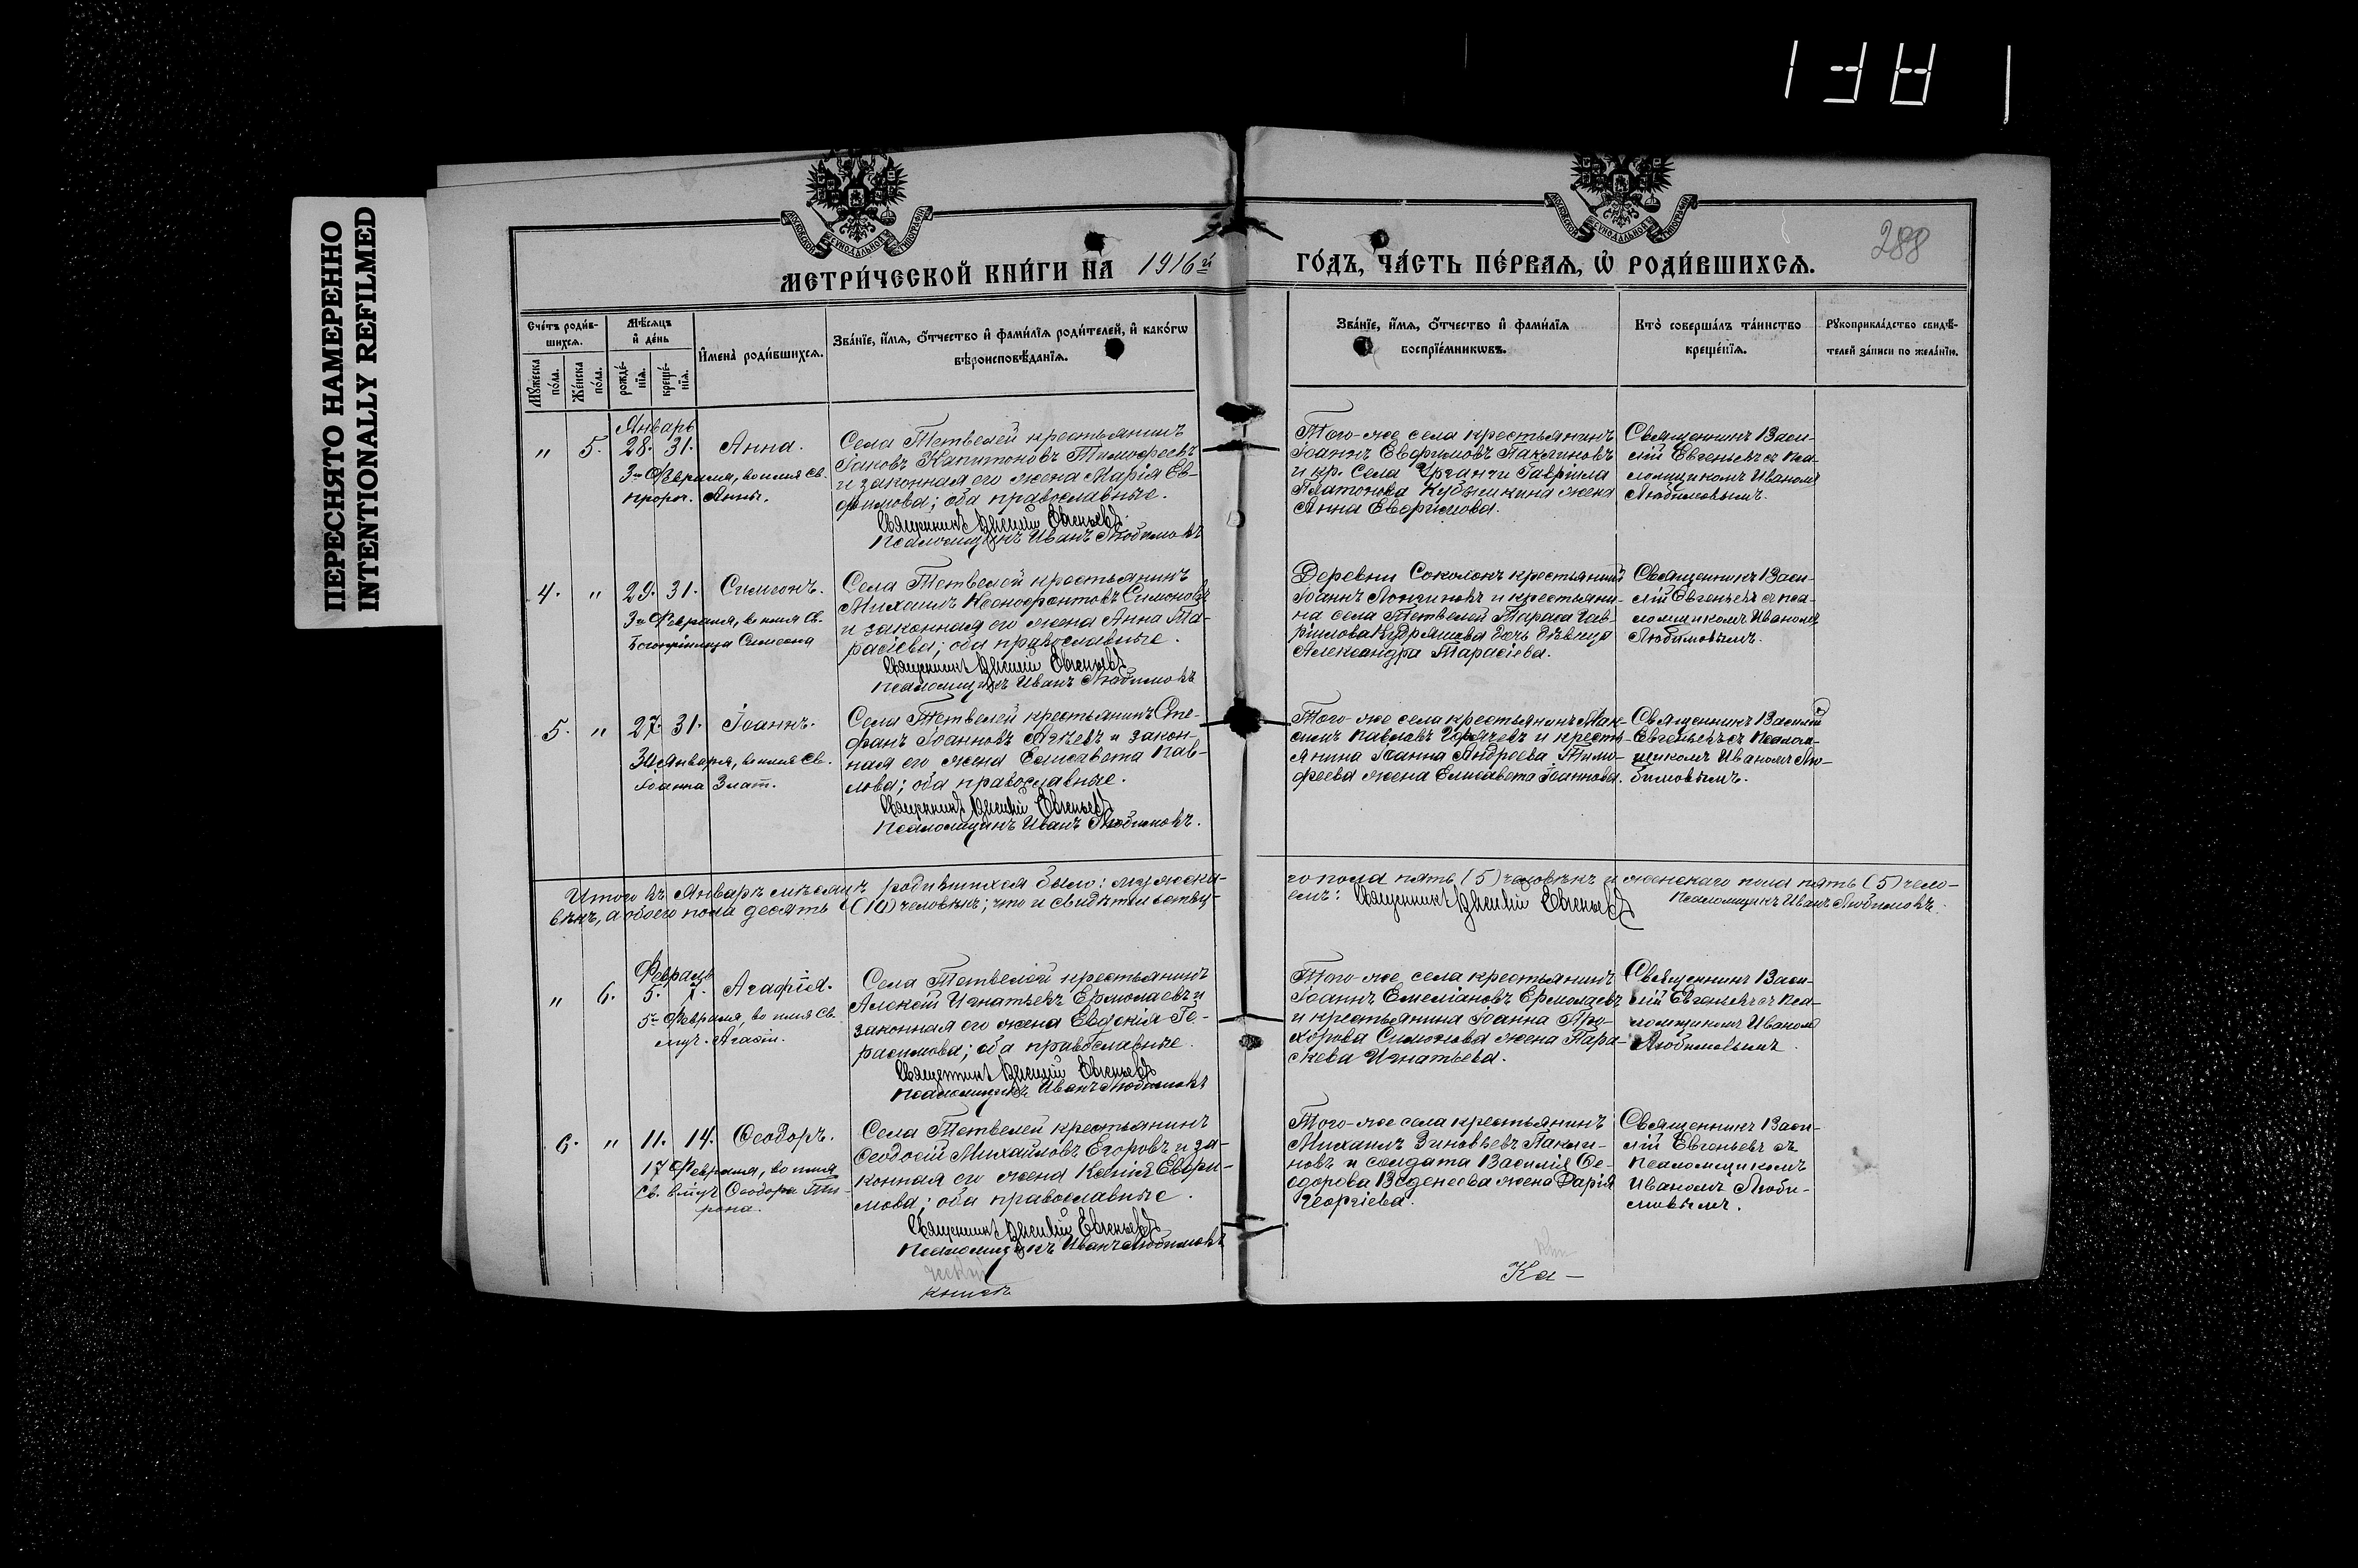 ПЕРЕСНЯТО НАМЕРЕННО
INTENTIONALLY REFILMED
288
МЕТРИ́ЧЕСКОЙ КНИ́ГИ НА̀ 1916й
ГО́ДЪ, ЧА́СТЬ ПЕ́РВАѦ, Ѡ҆ РОДИ́ВШИХСѦ.
Сче́тъ роди́в-
шихсѧ.
Мꙋ́жеска по́ла.
Же́нска по́ла.
Мѣ́сѧцъ
и҆ де́нь
рожде́-
нїѧ.
креще́-
нїѧ.
И҆мена̀ роди́вшихсѧ.
Зва́нїе, и҆́мѧ, ѻ҆́тчество и҆ фамѝлїѧ роди́телей, и҆ како́гѡ
вѣроисповѣ́данїѧ.
Зва́нїе, и҆́мѧ, ѻ҆́тчество и҆ фамѝлїѧ
воспрїе́мникѡвъ.
Кто̀ соверша́лъ та́инство
креще́нїѧ.
Рꙋкоприкла́дство свидѣ́-
телей за́писи по жела́нїю.
Январь
" 5. 28. 31. Анна.
3го Февраля, во имя Св.
пророч. Анны.
Села Тетвелей крестьянинъ
Іаковъ Капитоновъ Тимофеевъ
и законная его жена Марія Ев-
фимова; оба православные.
Священникъ Василій Евгеньевъ
Псаломщикъ Иванъ Любимовъ
Того-же села крестьянинъ
Іоаннъ Евфимовъ Паклиновъ
и кр. села Урганчи Гавріила
Платонова Кубышкина жена
Анна Евфимова.
Священникъ Васи-
лій Евгеньевъ съ пса-
ломщикомъ Иваномъ
Любимовымъ.
4. " 29. 31. Симеонъ.
3го Февраля, во имя Св.
Богопріимца Симеона
Села Тетвелей крестьянинъ
Михаилъ Ксенофонтовъ Симоновъ
и законная его жена Анна Та-
расіева; оба православные.
Священникъ Василій Евгеньевъ
Псаломщикъ Иванъ Любимовъ
Деревни Соколокъ крестьянинъ
Іоаннъ Лонгиновъ и крестьяни-
на села Тетвелей Тараса Гав-
ріилова Кудряшова дочь девица
Александра Тарасіева.
Священникъ Васи-
лій Евгеньевъ съ пса-
ломщикомъ Иваномъ
Любимовымъ.
5. " 27. 31. Іоаннъ.
30 Января, во имя Св.
Іоанна Злат.
Села Тетвелей крестьянинъ Сте-
фанъ Іоанновъ и закон-
ная его жена Елисавета Пав-
лова; оба православные.
Священникъ Василій Евгеньевъ
Псаломщикъ Иванъ Любимовъ.
Того-же села крестьянинъ Мак-
симъ Павловъ Горячевъ и кресть-
янина Іоанна Андреева Тимо-
феева жена Елисавета Іоаннова.
Священникъ Василій
Евгеньевъ съ псалом-
щикомъ Иваномъ Лю-
бимовымъ.
Итого въ Январѣ мѣсяцѣ родившихся было: мужска-
го пола пять (5) человѣкъ и женскаго пола пять (5) чело-
вѣкъ, а обоего пола десять (10) человѣкъ; что и свидѣтельству-
емъ: Священникъ Василій Евгеньевъ Псаломщикъ Иванъ Любимовъ.
Февраль
" 6. 5. 7. Агафія.
5го Февраля, во имя Св.
муч. Агафіи.
Села Тетвелей крестьянинъ
Алексій Игнатьевъ Ермолаевъ и
законная его жена Евдокія Ге-
расимова; оба православные.
Священникъ Василій Евгеньевъ
Псаломщикъ Иванъ Любимовъ
Того-же села крестьянинъ
Іоаннъ Емеліановъ Ермолаевъ
и крестьянина Іоанна Про-
хорова Симонова жена Пара-
скева Игнатьева.
Священникъ Васи-
лій Евгеньевъ съ пса-
ломщикомъ Иваномъ
Любимовымъ.
6. " 11. 14. Ѳеодоръ.
17 Февраля, во имя
Св. в.муч. Ѳеодора Ти-
рона.
Села Тетвелей крестьянинъ
Ѳеодосій Михайловъ Егоровъ и за-
конная его жена Ксенія Евфи-
мова; оба православные.
Священникъ Василій Евгеньевъ
Псаломщикъ Иванъ Любимовъ
Того-же села крестьянинъ
Михаилъ Зиновьевъ Пакли-
новъ и солдата Василія Ѳе-
одорова Веденеева жена Дарія
Георгіева.
Священникъ Васи-
лій Евгеньевъ съ
псаломщикомъ
Иваномъ Люби-
мовымъ.
Ка-